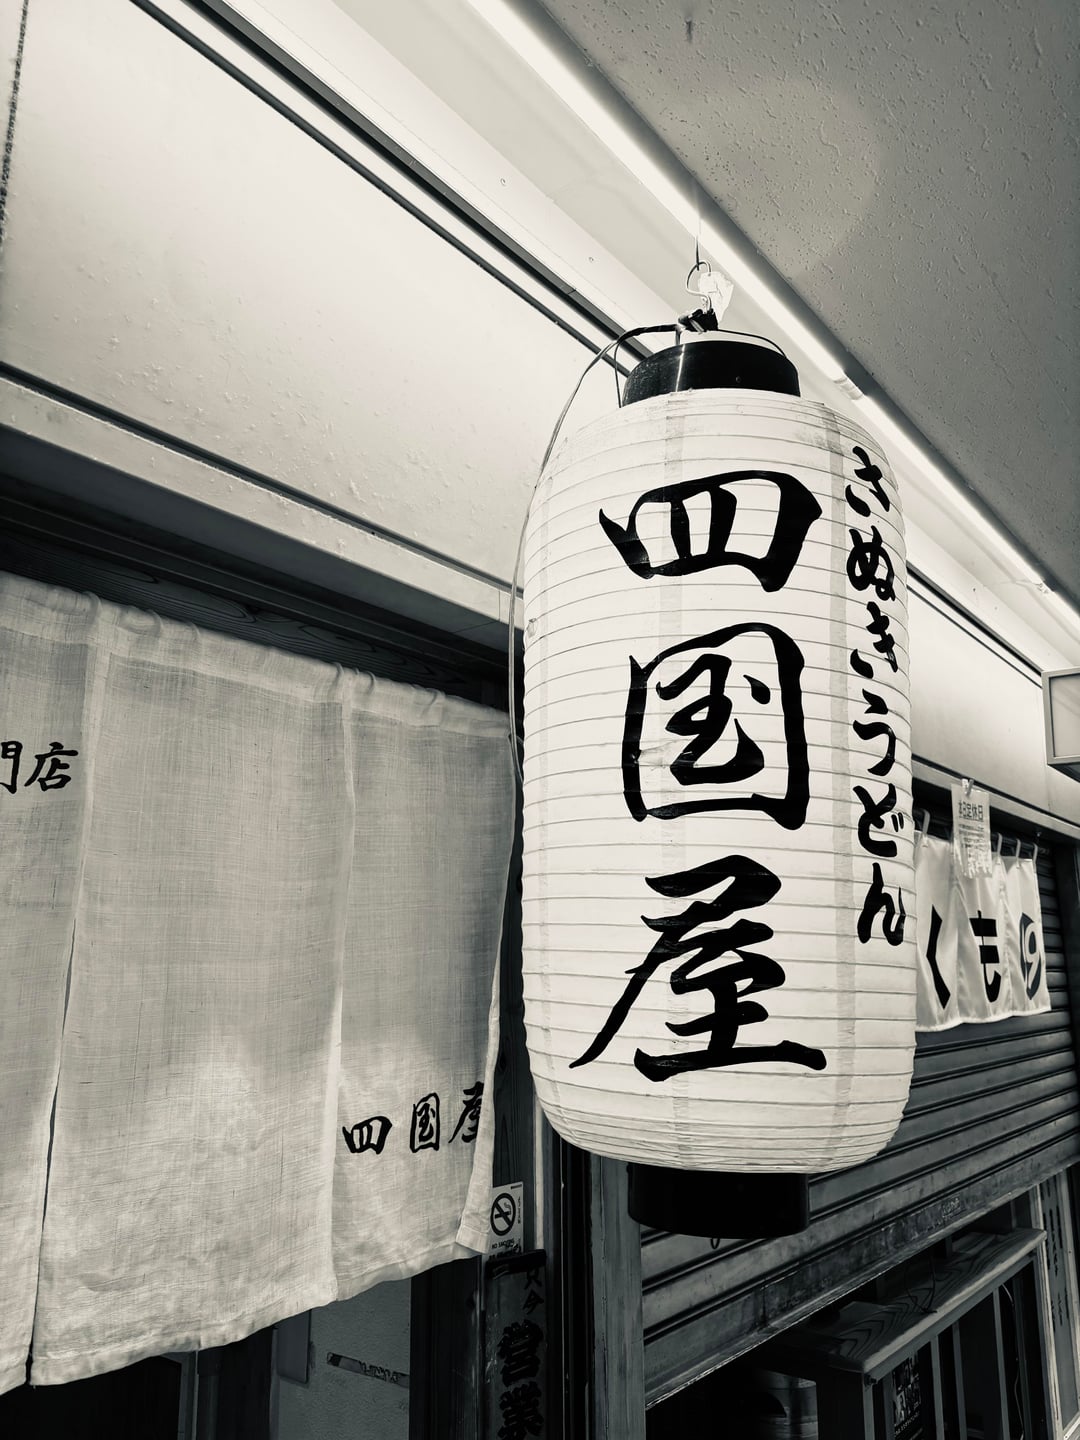 さぬきうどん
四国屋
門店
四国屋
NO SMOKING
只今
営業
本日定休日
くもり